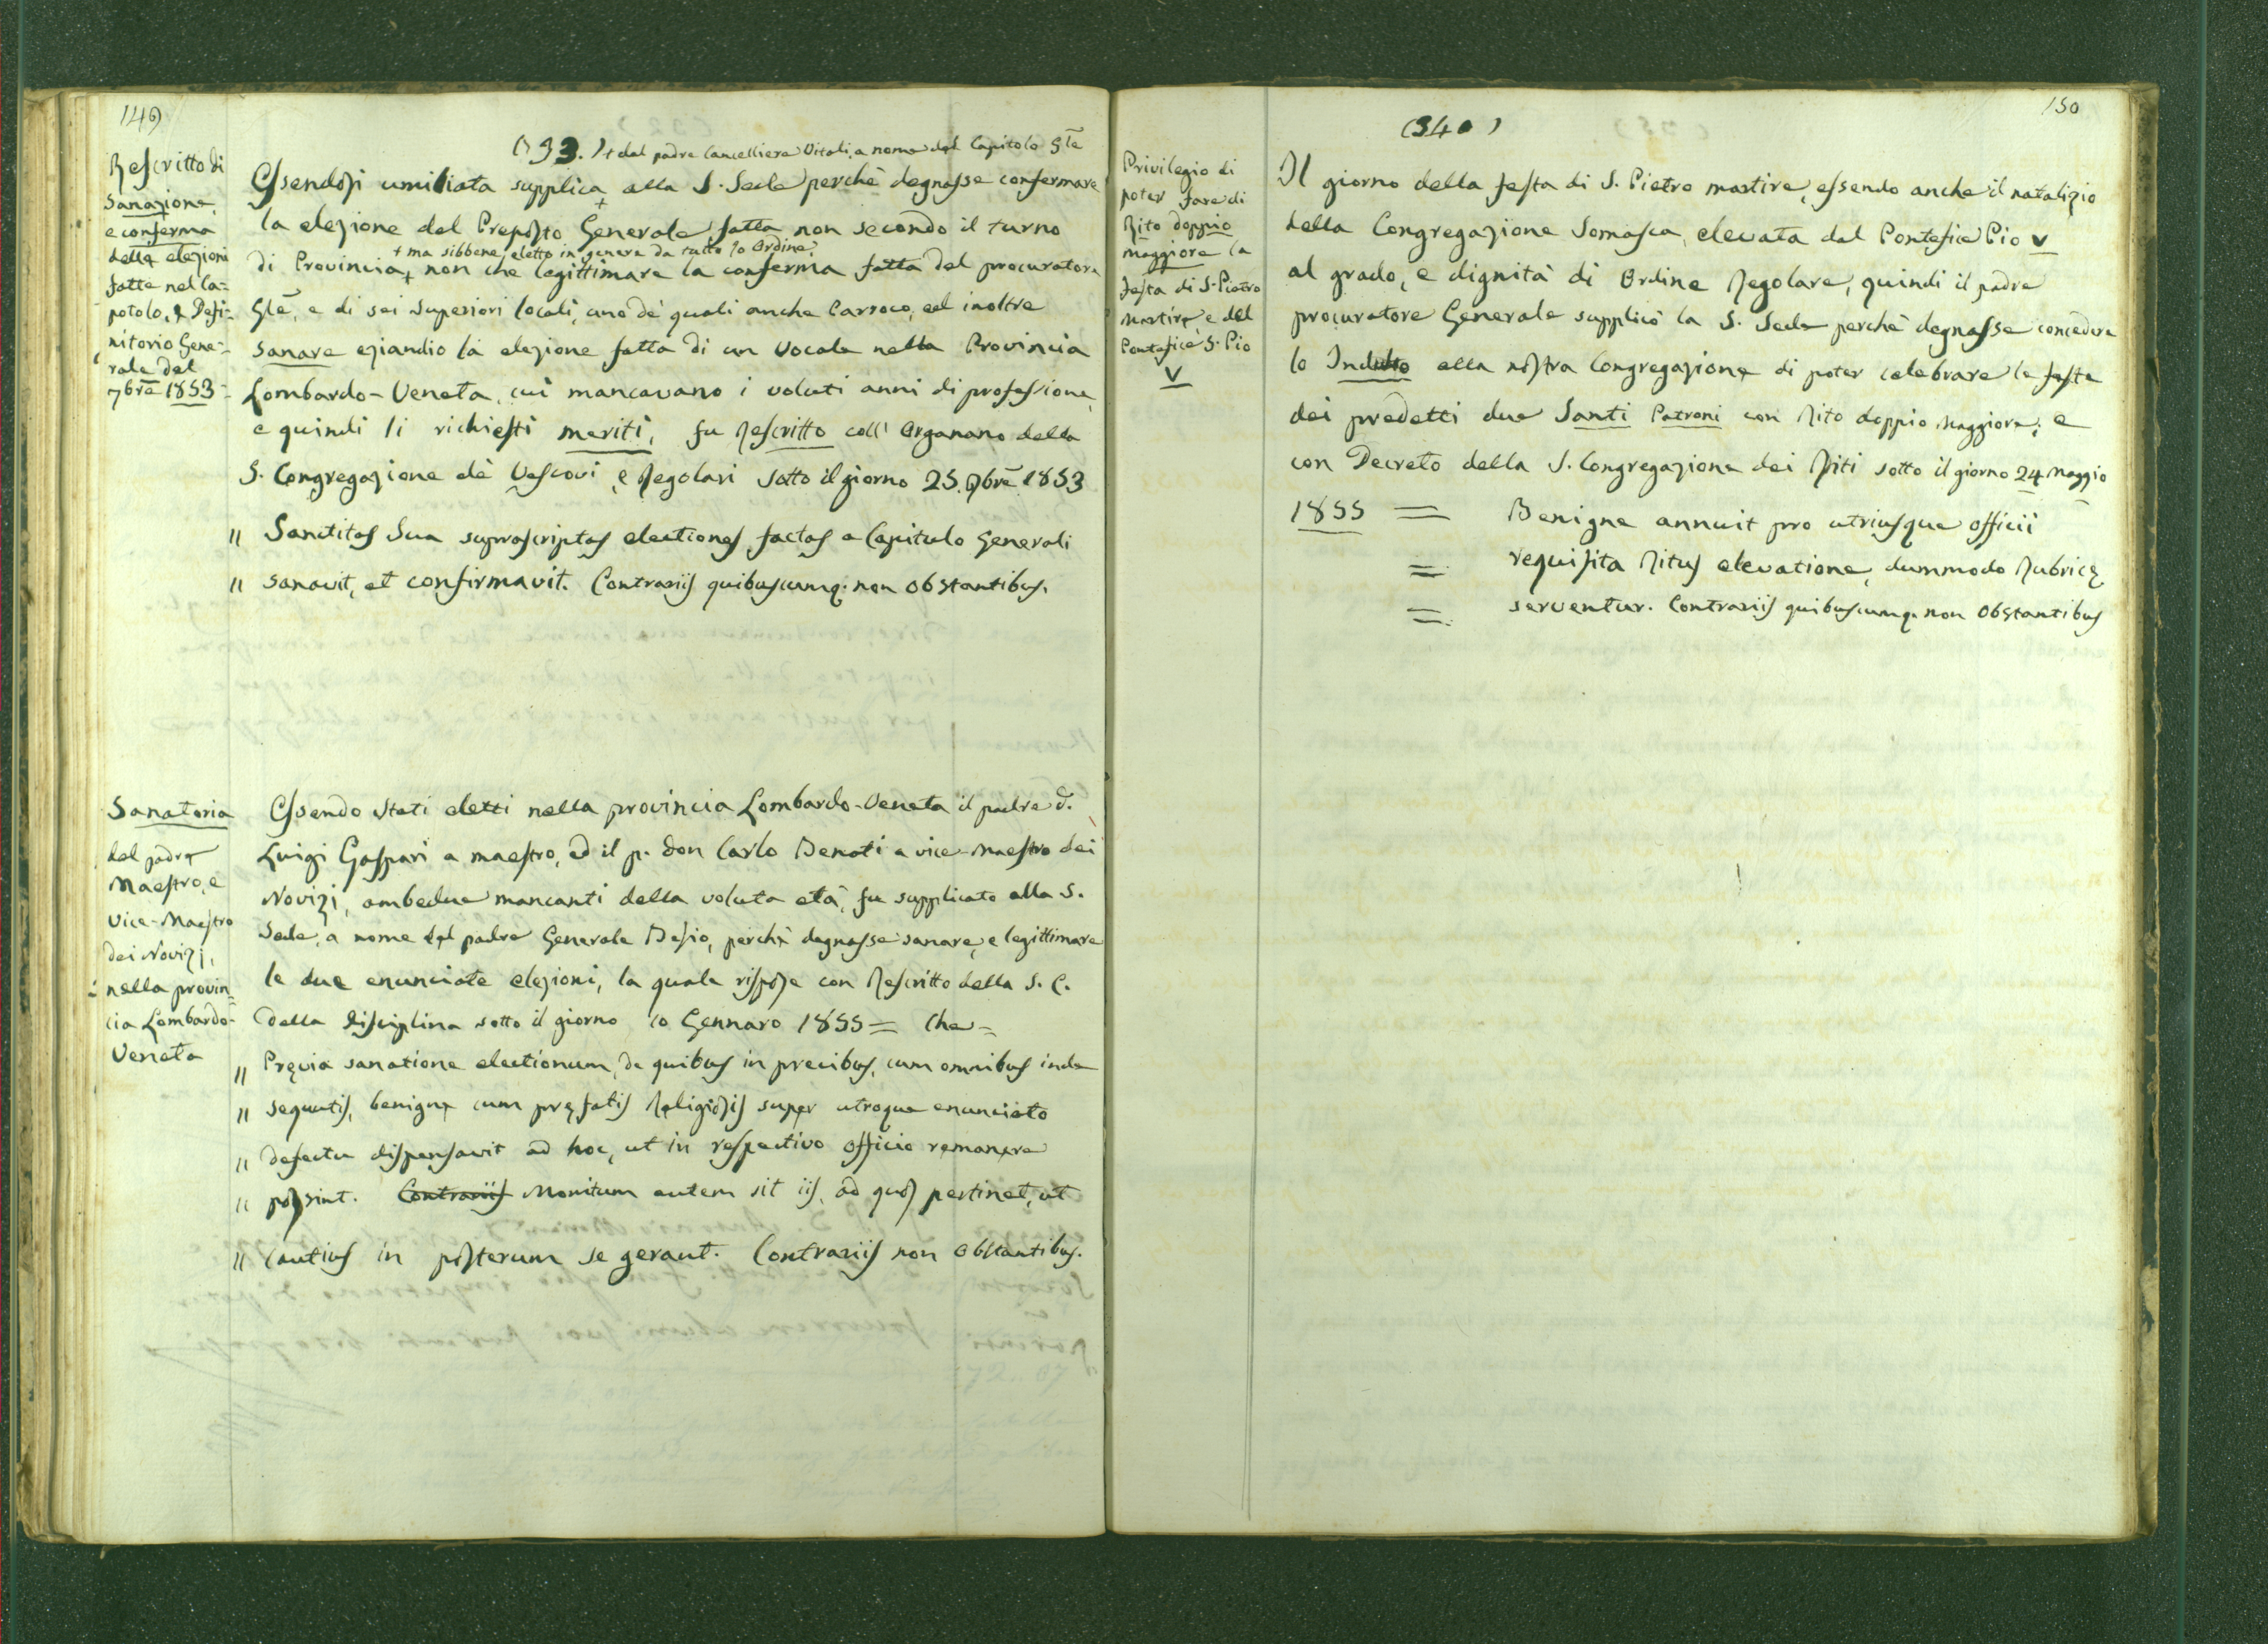 149
(393.) + dal padre Cancelliere Vitali, a nome del Capitolo Gle
Rescritto di
Sanazione,
e conferma
delle elezioni
fatte nel Ca=
potolo, e Defi=
nitorio Gene=
rale del
7bre 1853=
Essendosi umiliata supplica + alla S. Sede perchè degnasse confermare
la elezione del Preposto Generale fatta non secondo il turno
+ ma sibbene eletto in genere da tutto lo Ordine,
di Provincia, + non che legittimare la conferma fatta del procuratore
Gle, e di sei Superiori locali, uno de' quali anche Parroco, ed inoltre
sanare eziandio la elezione fatta di un Vocale nella Provincia
Lombardo-Veneta, cui mancavano i voluti anni di professione,
e quindi li richiesti meriti, fu Rescritto coll' Organano della
S. Congregazione dè Vescovi, e Regolari sotto il giorno 25. 9bre 1853
" Sanctitas Sua suprascriptas electiones factas a Capitulo Generali
" sanavit, et confirmavit. Contrariis quibuscumq: non obstantibus.
Sanatoria
del padre
Maestro, e
Vice-Maestro
dei Novizj,
nella provin=
cia Lombardo-
Veneta
Essendo stati eletti nella provincia Lombardo-Veneta il padre d.
Luigi Gaspari a maestro, ed il p. don Carlo Benati a vice-Maestro dei
Novizj, ambedue mancanti della voluta età, fu supplicato alla S.
Sede, a nome del padre Generale Besio, perchè degnasse sanare, e legittimare
le due enunciate elezioni, la quale rispose con Rescritto della S. C.
della Disciplina sotto il giorno 10 Gennaro 1855 = Che =
" Pręvia sanatione electionum, de quibus in precibus, cum omnibus inde
" sequutis, benigne cum pręfatis Religiosis super utroque enunciato
" defectu dispensavit ad hoc, ut in respectivo officio remanere
" possint. Contrariis Monitum autem sit iis, ad quos pertinet, ut
" cautius in posterum se gerant. Contrariis non obstantibus.
150
(340)
Privilegio di
poter fare di
Rito doppio
maggiore la
festa di S. Pietro
Martire, e del
Pontefice S. Pio
V
Il giorno della festa di S. Pietro martire, essendo anche il natalizio
della Congregazione Somasca, elevata dal Pontefice Pio V
al grado, e dignità di Ordine Regolare, quindi il padre
procuratore Generale supplicò la S. Sede perchè degnasse concedere
lo Indulto alla nostra Congregazione di poter celebrare le feste
dei predetti due Santi Patroni con Rito doppio Maggiore; e
con Decreto della S. Congregazione dei Riti sotto il giorno 24 Maggio
1855 = Benigne annuit pro utriusque officii
= requisita Ritus elevatione, dummodo Rubricę
= serventur. Contrariis quibuscumq. non obstantibus